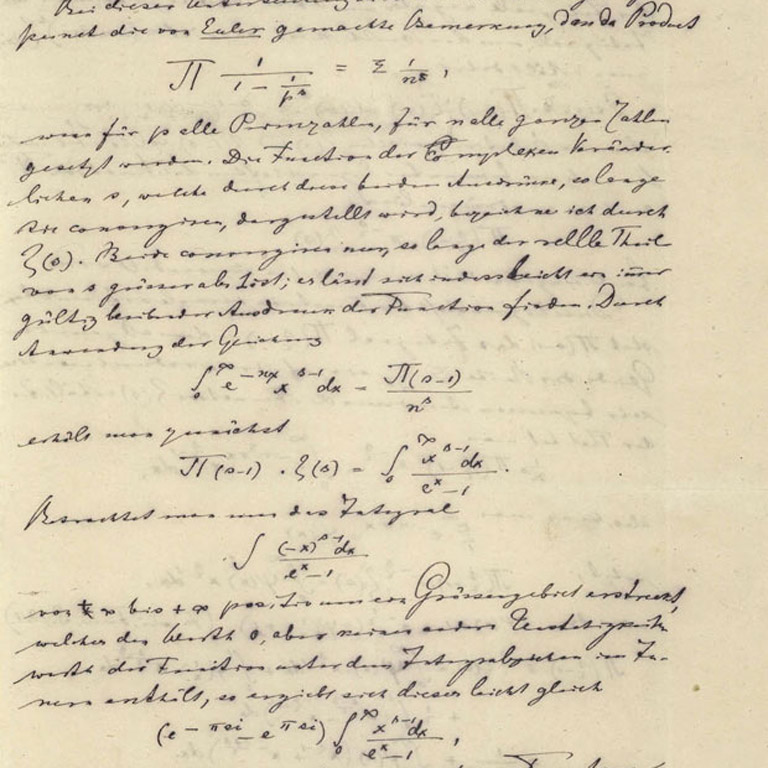 Bei dieser Untersuchung
punct die von Euler gemachte Bemerkung, dass das Product
∏ 1/(1 − 1/p^s) = Σ 1/n^s,
wenn für p alle Primzahlen, für n alle ganzen Zahlen
gesetzt werden. Die Function der complexen Veränder-
lichen s, welche durch diese beiden Ausdrücke, so lange
sie convergiren, dargestellt wird, bezeichne ich durch
ζ(s). Beide convergiren nur, so lange der reelle Theil
von s grösser als 1 ist; es lässt sich indess leicht ein immer
gültig bleibender Ausdruck der Function finden. Durch
Anwendung der Gleichung
∫_0^∞ e^{−nx} x^{s−1} dx = Π(s−1)/n^s
erhält man zunächst
Π(s−1) . ζ(s) = ∫_0^∞ x^{s−1} dx/(e^x −1) .
Betrachtet man nun das Integral
∫ (−x)^{s−1} dx/(e^x −1)
von +∞ bis +∞ positiv um ein Grössengebiet erstreckt,
welches den Werth 0, aber keinen andern Unstetigkeits-
werth der Function unter dem Integralzeichen im In-
nern enthält, so ergiebt sich dieses leicht gleich
(e^{−πsi} − e^{πsi}) ∫_0^∞ x^{s−1} dx/(e^x −1) ,